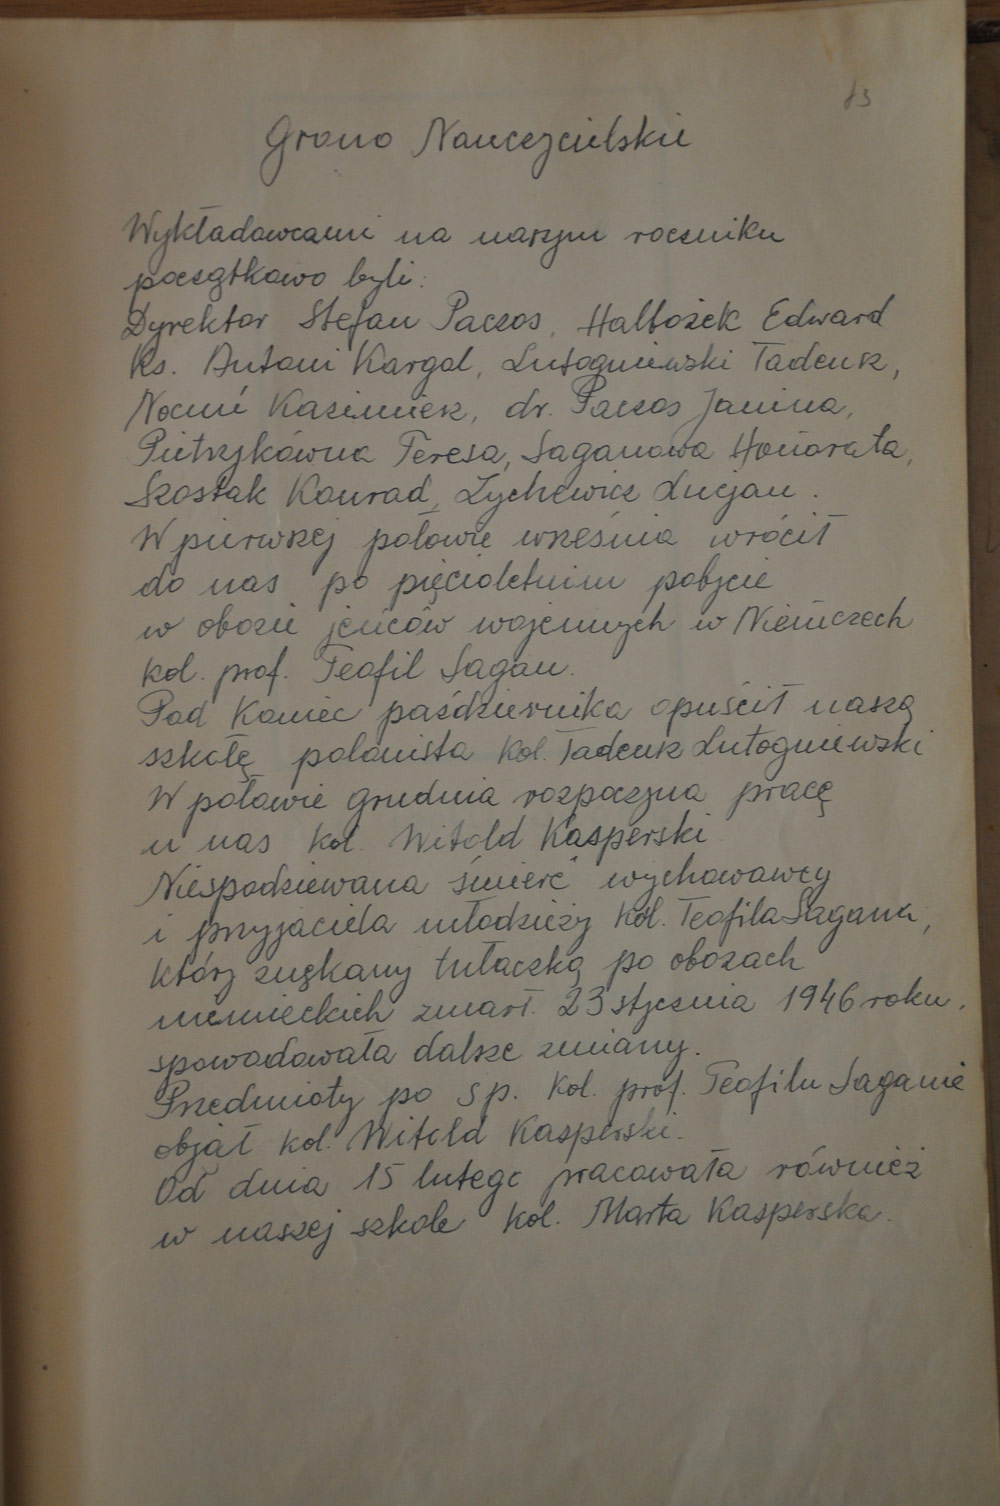 83
Grono Nauczycielskie
Wykładowcami na naszym roczniku
początkowo byli:
Dyrektor Stefan Paczos, Hałbożek Edward
Ks. Antoni Kargol, Lutogniewski Tadeusz,
Nocuń Kazimierz, dr. Paczos Janina,
Pietrzykówna Teresa, Saganowa Honorata,
Szostak Konrad, Żychewicz Lucjan.
W pierwszej połowie września wrócił
do nas po pięcioletnim pobycie
w obozie jeńców wojennych w Niemczech
kol. prof. Teofil Sagan.
Pod koniec października opuścił naszą
szkołę polonista kol. Tadeusz Lutogniewski
W połowie grudnia rozpoczyna pracę
u nas kol. Witold Kasperski.
Niespodziewana śmierć wychowawcy
i przyjaciela młodzieży kol. Teofila Sagana,
który znękany tułaczką po obozach
niemieckich zmarł. 23 stycznia 1946 roku,
spowodowała dalsze zmiany.
Przedmioty po śp. kol. prof. Teofilu Saganie
objął kol. Witold Kasperski.
Od dnia 15 lutego pracowała również
w naszej szkole kol. Marta Kasperska.